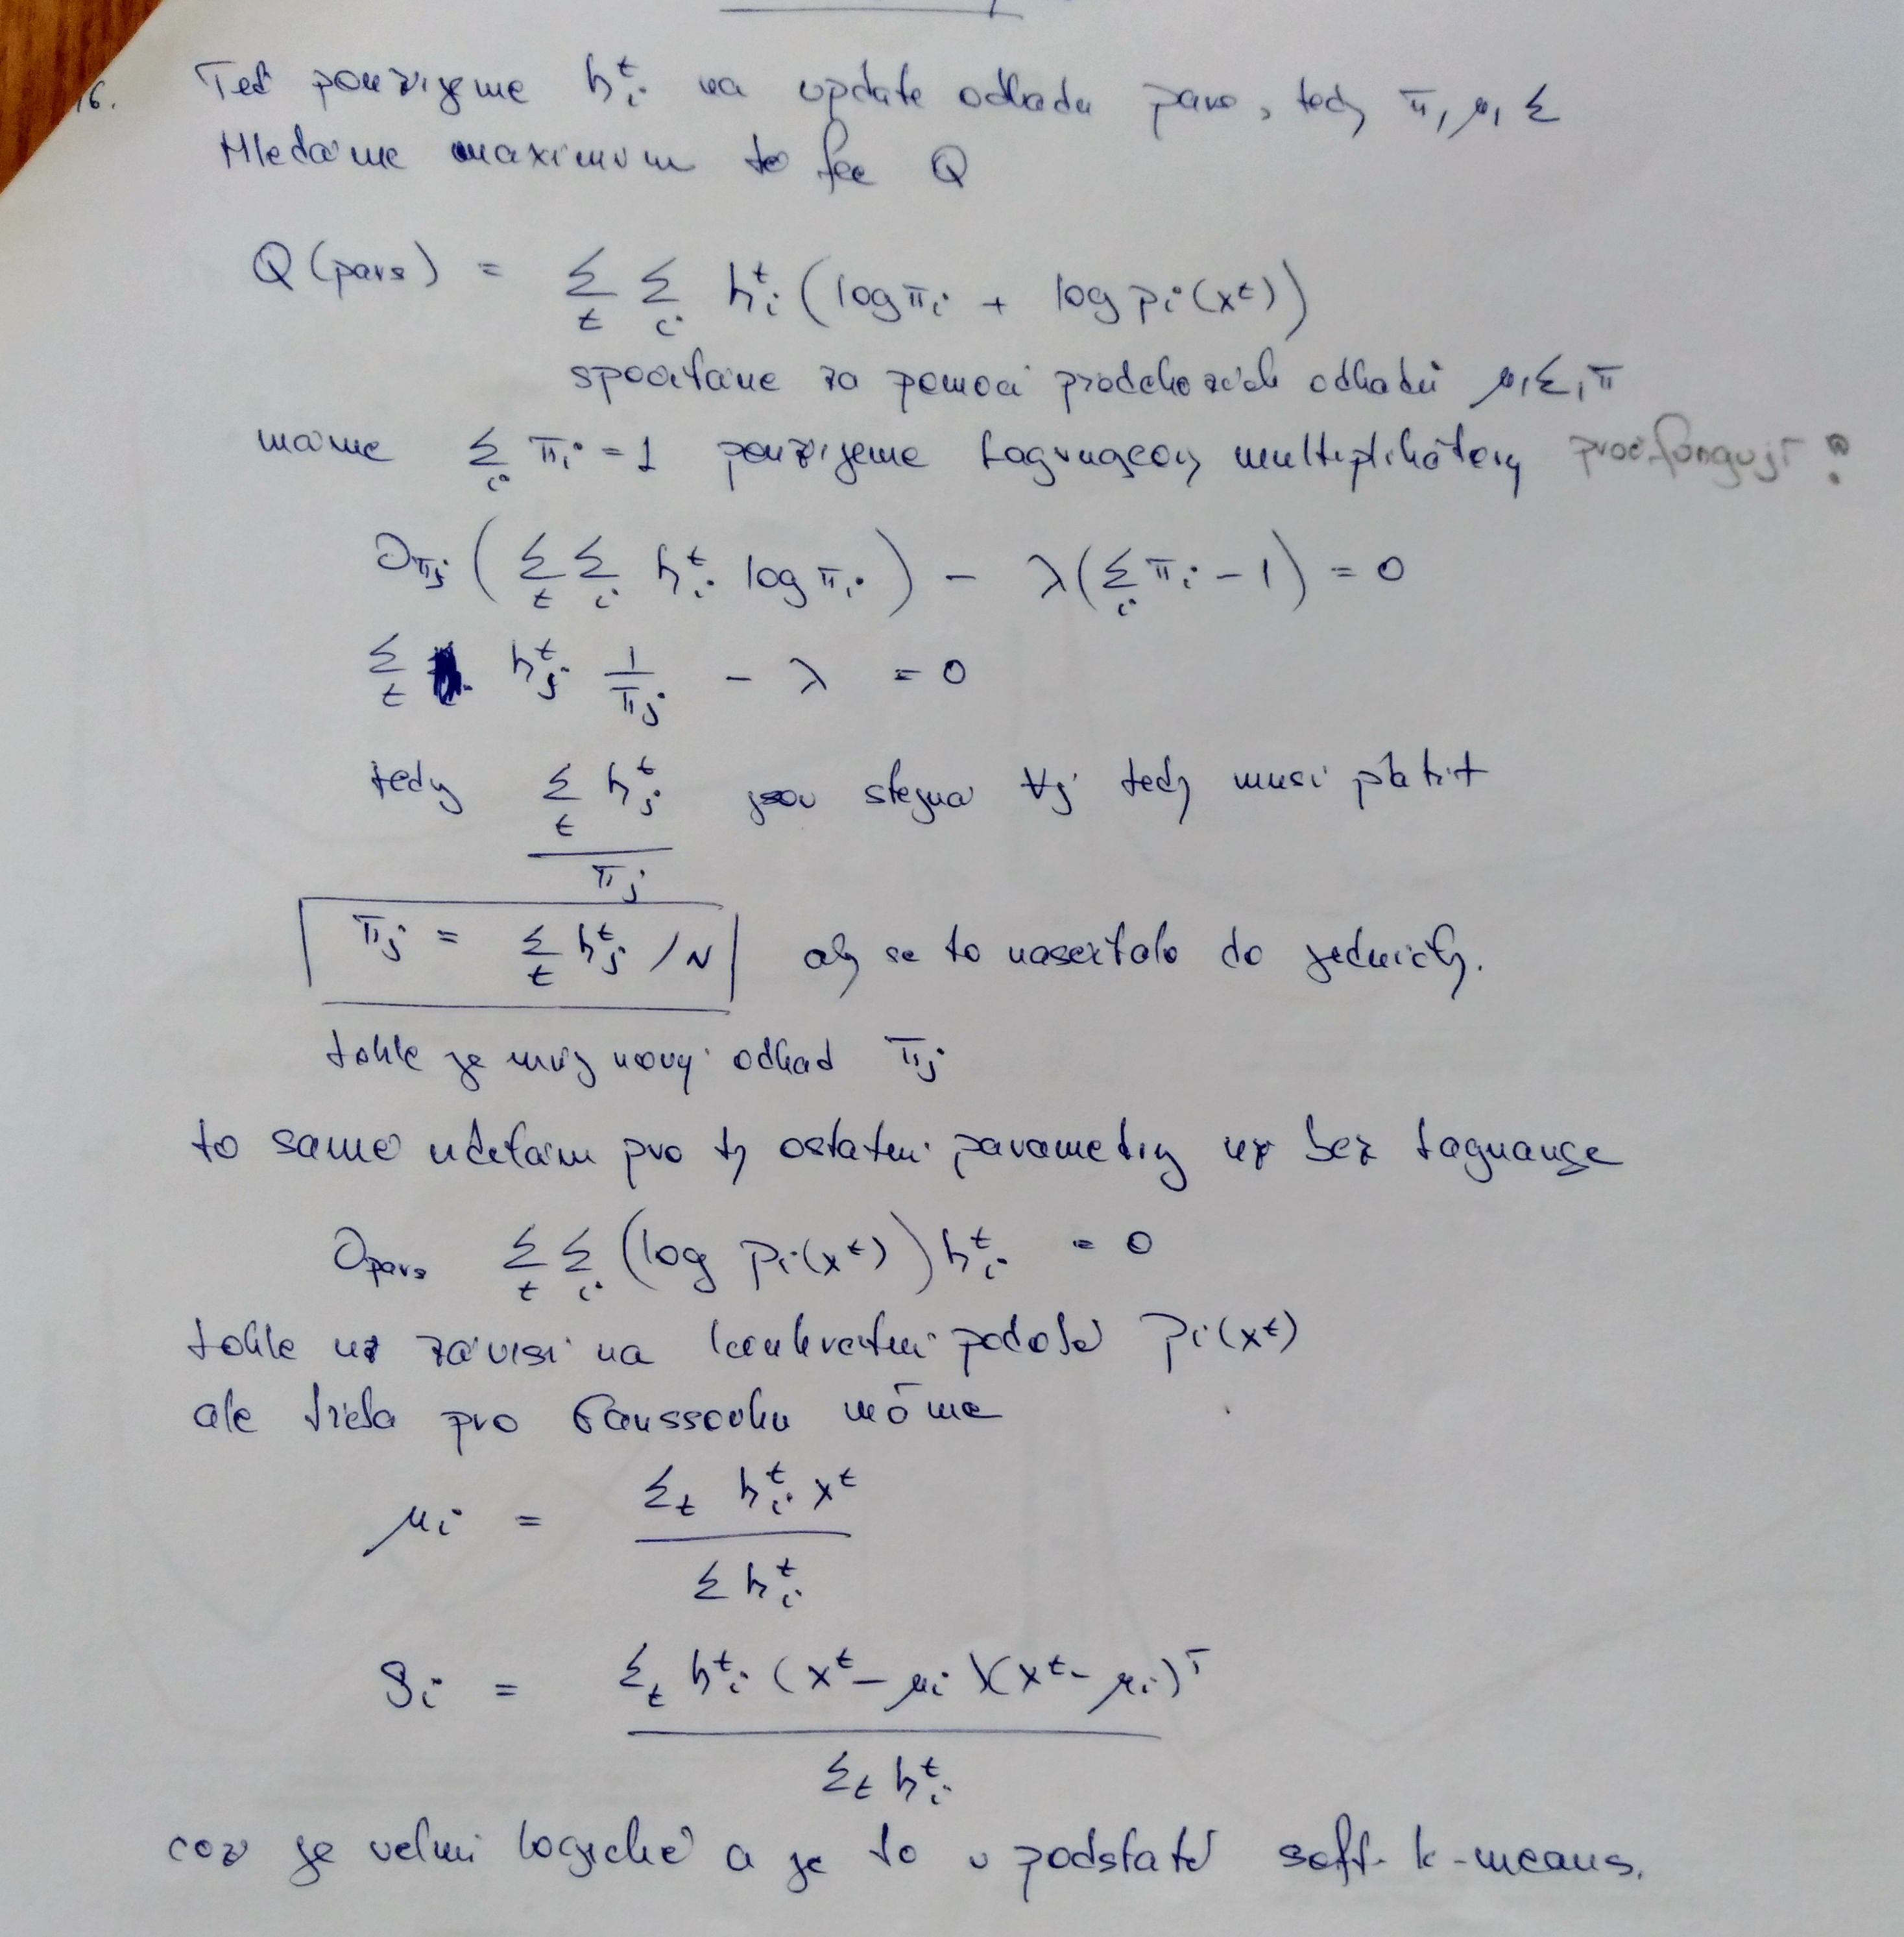 16. Teď použijeme hᵢᵗ na update odhadu para, tedy π, μ, Σ
Hledáme maximum té fce Q
Q(pars) = Σ_t Σ_i hᵢᵗ (log πᵢ + log pᵢ(xᵗ))
spočítáne za pomoci předchozích odhadů μ, Σ, π
máme Σ_i πᵢ = 1 použijeme Lagrangeovy multiplikátory proč fungují?
∂_πj (Σ_t Σ_i hᵢᵗ log πᵢ) − λ(Σ_i πᵢ − 1) = 0
Σ_t hⱼᵗ 1/πⱼ − λ = 0
tedy Σ_t hⱼᵗ / πⱼ jsou stejná ∀j tedy musí platit
πⱼ = Σ_t hⱼᵗ / N aby se to nasčítalo do jedničky.
tohle je můj nový odhad πⱼ
to samé udělám pro ty ostatní parametry už bez Lagrange
∂_pars Σ_t Σ_i (log pᵢ(xᵗ)) hᵢᵗ = 0
tohle už závisí na konkrétní podobě pᵢ(xᵗ)
ale třeba pro Gaussovku máme
μᵢ = Σ_t hᵢᵗ xᵗ / Σ hᵢᵗ
Sᵢ = Σ_t hᵢᵗ (xᵗ − μᵢ)(xᵗ − μᵢ)ᵀ / Σ_t hᵢᵗ
což je velmi logické a je to v podstatě soft k-means.